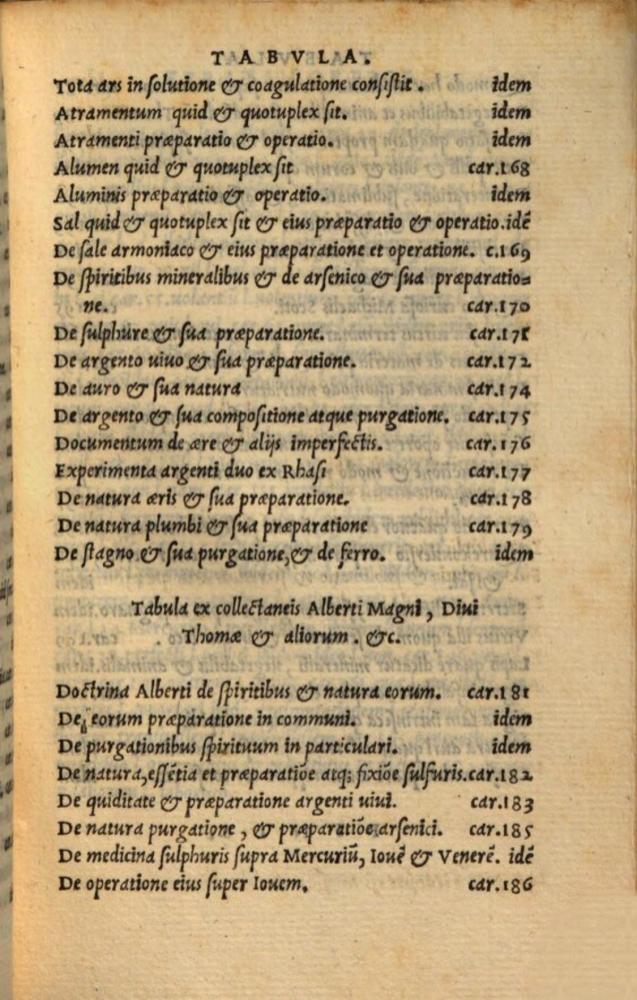 TABVLA.
Tota ars in ſolutione & coagulatione conſiſtit. idem
Atramentum quid & quotuplex ſit. idem
Atramenti præparatio & operatio. idem
Alumen quid & quotuplex ſit car.168
Aluminis præparatio & operatio. idem
Sal quid & quotuplex ſit & eius præparatio & operatio. idē
De ſale armoniaco & eius præparatione et operatione. c.169
De ſpiritibus mineralibus & de arſenico & ſua præparatio=
ne. car.170
De ſulphure & ſua præparatione. car.171
De argento uiuo & ſua præparatione. car.172
De auro & ſua natura car.174
De argento & ſua compoſitione atque purgatione. car.175
Documentum de ære & alijs imperfectis. car.176
Experimenta argenti duo ex Rhaſi car.177
De natura æris & ſua præparatione. car.178
De natura plumbi & ſua præparatione car.179
De ſtagno & ſua purgatione, & de ferro. idem
Tabula ex collectaneis Alberti Magni, Diui
Thomæ & aliorum. &c.
Doctrina Alberti de ſpiritibus & natura eorum. car.181
De eorum præparatione in communi. idem
De purgationibus ſpirituum in particulari. idem
De natura, eſſētia et præparatiōe atq; fixiōe ſulfuris. car.182
De quiditate & præparatione argenti uiui. car.183
De natura purgatione, & præparatiōe arſenici. car.185
De medicina ſulphuris ſupra Mercuriū, Iouē & Venerē. idē
De operatione eius ſuper Iouem. car.186